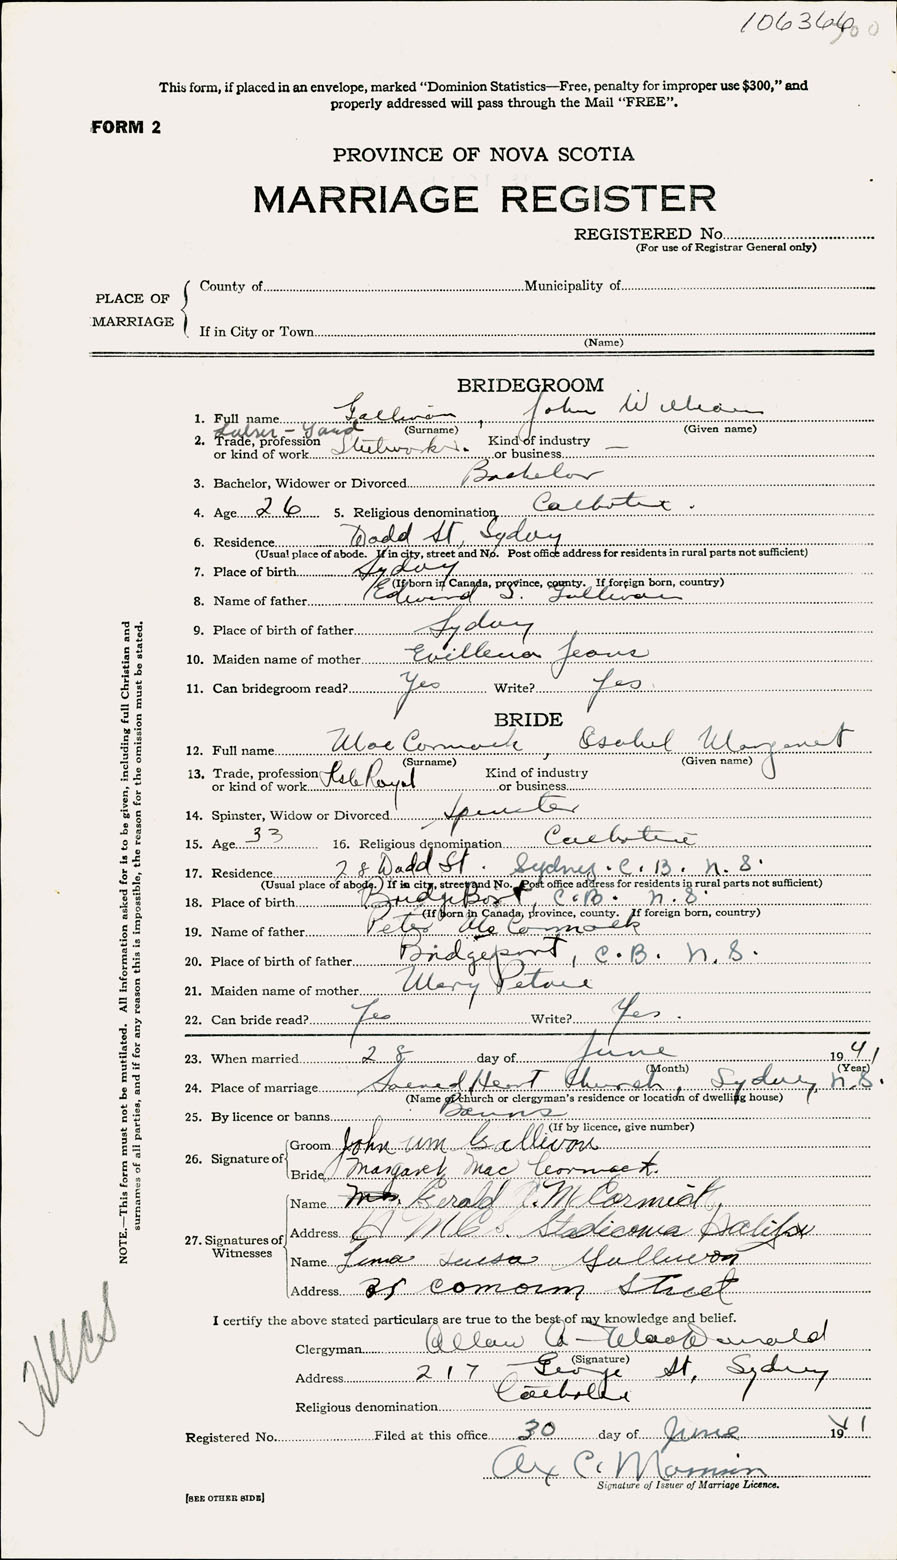 106366
This form, if placed in an envelope, marked “Dominion Statistics—Free, penalty for improper use $300,” and
properly addressed will pass through the Mail “FREE”.
FORM 2
PROVINCE OF NOVA SCOTIA
MARRIAGE REGISTER
REGISTERED No.
(For use of Registrar General only)
PLACE OF MARRIAGE
County of Municipality of
If in City or Town
(Name)
BRIDEGROOM
1. Full name Gallivan, John William
(Surname) (Given name)
2. Trade, profession or kind of work Steelworker. Kind of industry or business —
3. Bachelor, Widower or Divorced Bachelor
4. Age 26 5. Religious denomination Catholic.
6. Residence Dodd St, Sydney
(Usual place of abode. If in city, street and No. Post office address for residents in rural parts not sufficient)
7. Place of birth Sydney
(If born in Canada, province, county. If foreign born, country)
8. Name of father Edward J. Gallivan
9. Place of birth of father Sydney
10. Maiden name of mother Evillena Jeans
11. Can bridegroom read? Yes Write? Yes.
BRIDE
12. Full name MacCormack, Isabel Margaret
(Surname) (Given name)
13. Trade, profession or kind of work Isle Royal Kind of industry or business
14. Spinster, Widow or Divorced Spinster
15. Age 33 16. Religious denomination Catholic
17. Residence 28 Dodd St. Sydney. C. B. N. S.
(Usual place of abode.) If in city, street and No. Post office address for residents in rural parts not sufficient)
18. Place of birth BridgePort, C. B. N. S.
(If born in Canada, province, county. If foreign born, country)
19. Name of father Peter McCormack
20. Place of birth of father Bridgeport, C. B. N. S.
21. Maiden name of mother Mary
22. Can bride read? Yes Write? Yes.
23. When married 28 day of June 1941
(Month) (Year)
24. Place of marriage Sacred Heart Church, Sydney, N.S.
(Name of church or clergyman's residence or location of dwelling house)
25. By licence or banns Banns
(If by licence, give number)
26. Signature of
Groom John Wm Gallivan
Bride Margaret MacCormack.
27. Signatures of Witnesses
Name Gerald C. McCormick,
Address H.M.C.S. Stadacona Halifax
Name Lina Luisa Gallivan
Address 35 Street
I certify the above stated particulars are true to the best of my knowledge and belief.
Clergyman Allan A. MacDonald
(Signature)
Address 217 George St, Sydney
Religious denomination Catholic
Registered No. Filed at this office 30 day of June 1941
Alex C.
Signature of Issuer of Marriage Licence.
[SEE OTHER SIDE]
NOTE.—This form must not be mutilated. All information asked for is to be given, including full Christian and
surnames of all parties, and if for any reason this is impossible, the reason for the omission must be stated.